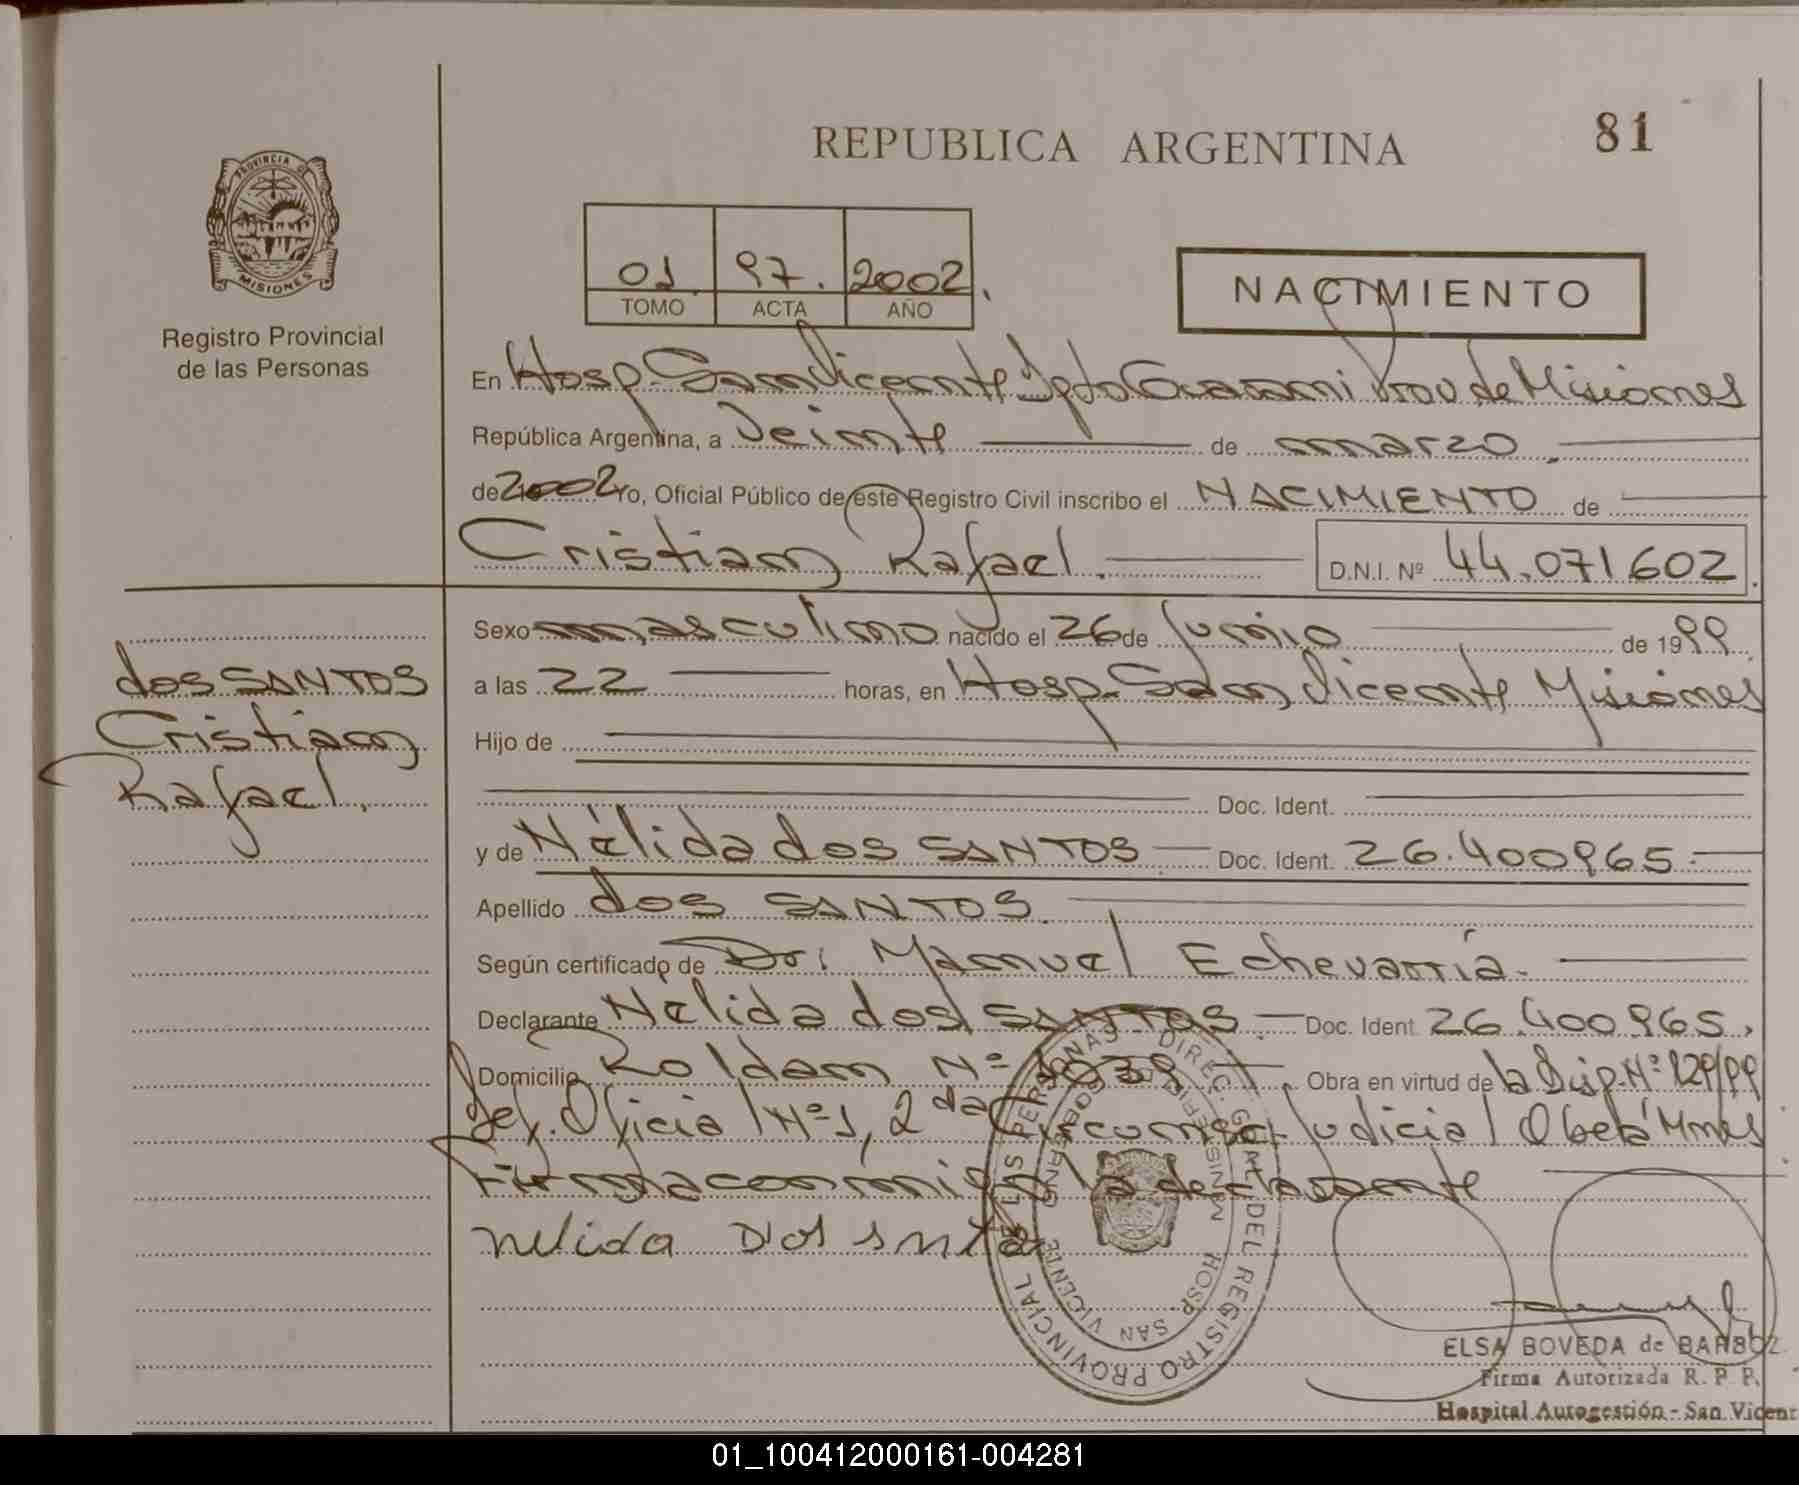 REPUBLICA ARGENTINA
81
PROVINCIA DE
MISIONES
Registro Provincial
de las Personas
01. 97. 2002.
TOMO ACTA AÑO
NACIMIENTO
En Hosp. San Vicente Dpto Guarani Prov de Misiones
República Argentina, a Veinte de marzo.
de 2002 Yo, Oficial Público de este Registro Civil inscribo el NACIMIENTO de
Cristian Rafael. D.N.I. Nº 44.071602.
Sexo masculino nacido el 26 de Junio de 1999.
a las 22 horas, en Hosp. San Vicente Misiones
Hijo de
Doc. Ident.
y de Nélida dos SANTOS Doc. Ident. 26.400965.
Apellido dos SANTOS.
Según certificado de Dr: Manuel Echevarría.
Declarante Nélida dos SANTOS. Doc. Ident. 26.400965.
Domicilio Roldan Nº 1039 Obra en virtud de la Disp. Nº 129/99
Def. Oficial Nº 1, 2da Circunsc. Judicial Oberá Mnes
Firma conmigo la declarante
dos SANTOS
Cristian
Rafael.
nelida Dos
DIREC. GRAL. DEL REGISTRO PROVINCIAL DE LAS PERSONAS
MINISTERIO DE GOBIERNO
HOSP. SAN VICENTE
ELSA BOVEDA de BARBOZ
Firma Autorizada R. P. P.
Hospital Autogestión - San Vicent
01_100412000161-004281